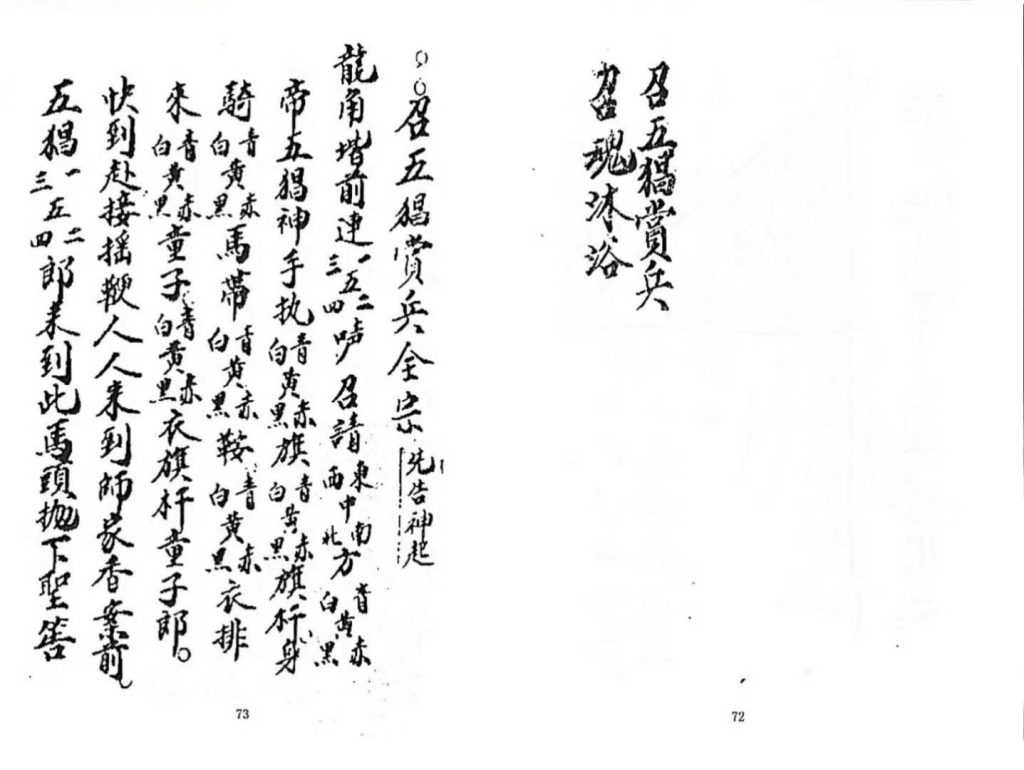 召五猖賞兵
召魂沐浴
72
○○召五猖賞兵全宗 先告神起
龍角堦前連一二五三四声召請東南中西北方青赤黄白黑
帝五猖神手执青赤黄白黑旗青赤黄白黑旗杆身
騎青赤黄白黑馬帶青赤黄白黑鞍青赤黄白黑衣排
來青赤黄白黑童子青赤黄白黑衣旗杆童子郎。
快到赴接摇鞭人人来到師家香案前
五猖一二五三四郎来到此馬頭抛下聖筶
73